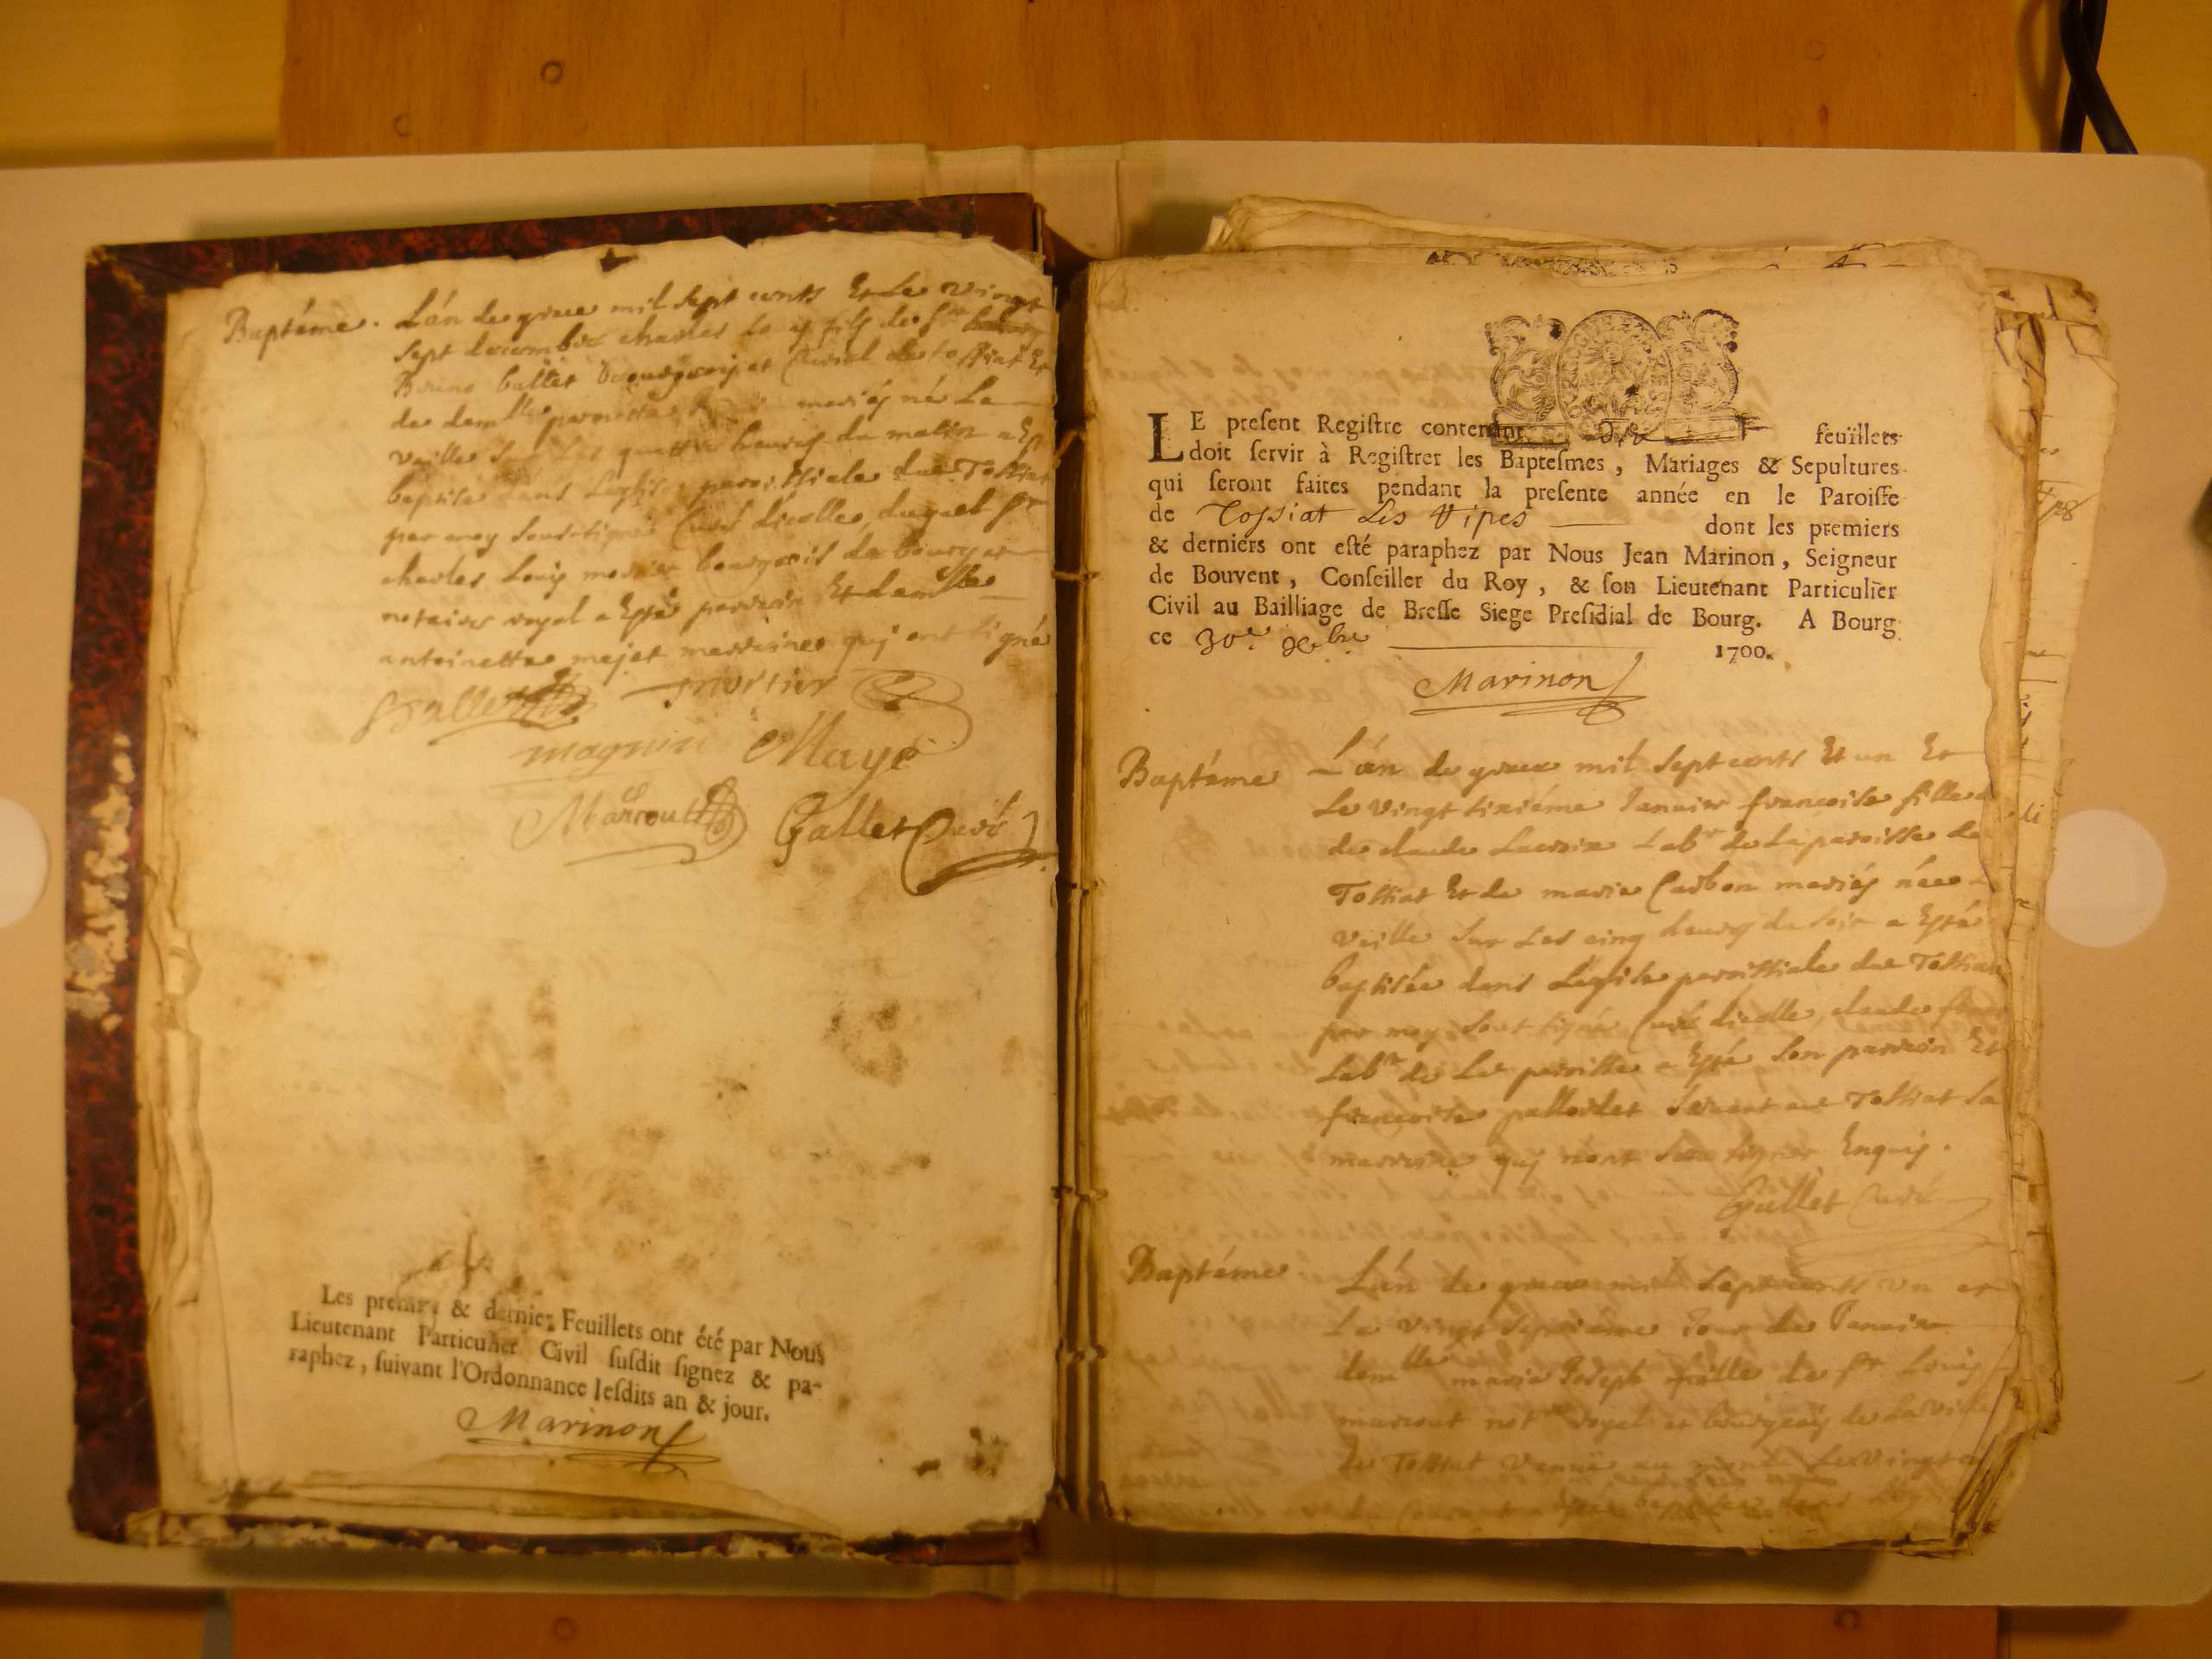 Baptéme. L'án de grace mil sept cents Et Le vingt
sept decembre charles Louis fils de Sr
Bruno ballet bourgeois et Curial de tossiat Et
de demlle perrette mariés né La
veille sur Les quattre heures du matin a Esté
baptisé dans Leglise paroissiale de Tossiat
par moy sous-signé Curé dicelle, duquel sr
charles Louis mortier bourgeois de bourg et
notaire royal a Esté parrain Et demlle
antoinette majet marraine quj ont signé
Ballet mortier
magnin Maye
Marrout Gallet Curé
Les premrs & derniez Feuillets ont été par Nous
Lieutenant Particulier Civil susdit signez & pa-
raphez, suivant l'Ordonnance lesdits an & jour.
Marinon
LE present Registre contenant dix feuillets
doit servir à Registrer les Baptesmes, Mariages & Sepultures
qui seront faites pendant la presente année en le Paroisse
de Tossiat Les Vipes dont les premiers
& derniers ont esté paraphez par Nous Jean Marinon, Seigneur
de Bouvent, Conseiller du Roy, & son Lieutenant Particulier
Civil au Bailliage de Bresse Siege Presidial de Bourg. A Bourg
ce 30e. Xbre 1700.
Marinon
Baptéme L'án de grace mil sept cents Et un Et
Le vingt sixiéme Janvier francoise fille
de claude Lacroix Labr de La paroisse de
Tossiat Et de marie Carbon mariés née
veille sur Les cinq heures du soir a Esté
baptisée dans Leglise paroissiale de Tossiat
par moy sous signé Curé dicelle, claude
Labr de La paroisse a Esté son parrain Et
francoise servant au Tossiat sa
marraine quj n'ont sceu signer Enquis.
Gallet Curé
Baptéme. L'án de grace mil sept cents un et
Le vingt septiéme Jour de Janvier
demlle marie Joseph fille de sr Louis
marrout notre royal et bourgeois de La ville
de Tossiat venüe au monde Le vingt
du Courant a Esté baptisée dans